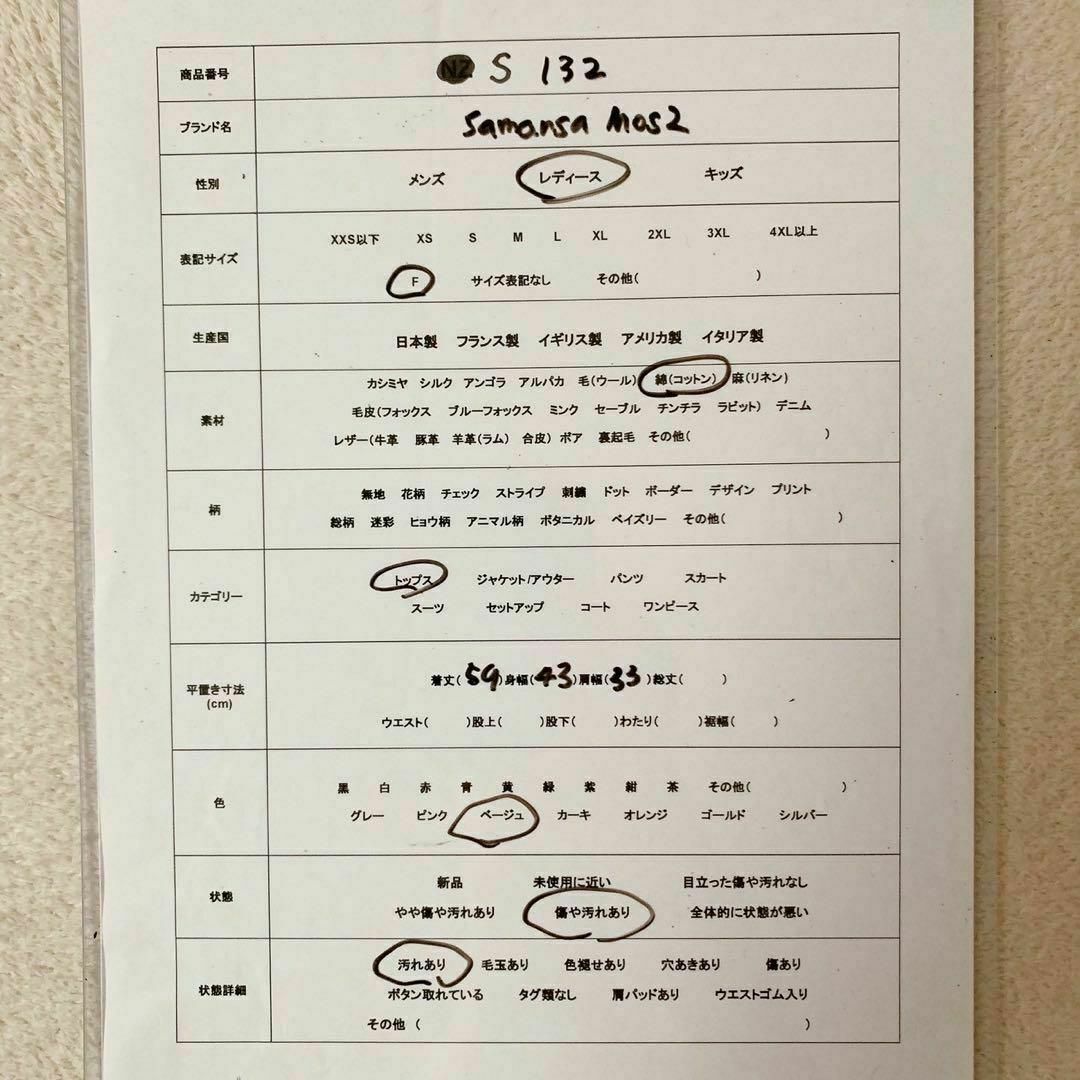 商品番号 NZ S 132
ブランド名 Samansa Mos2
性別 メンズ レディース キッズ
表記サイズ
XXS以下 XS S M L XL 2XL 3XL 4XL以上
F サイズ表記なし その他( )
生産国 日本製 フランス製 イギリス製 アメリカ製 イタリア製
素材
カシミヤ シルク アンゴラ アルパカ 毛(ウール) 綿(コットン) 麻(リネン)
毛皮(フォックス ブルーフォックス ミンク セーブル チンチラ ラビット) デニム
レザー(牛革 豚革 羊革(ラム) 合皮) ボア 裏起毛 その他( )
柄
無地 花柄 チェック ストライプ 刺繍 ドット ボーダー デザイン プリント
総柄 迷彩 ヒョウ柄 アニマル柄 ボタニカル ペイズリー その他( )
カテゴリー
トップス ジャケット/アウター パンツ スカート
スーツ セットアップ コート ワンピース
平置き寸法
(cm)
着丈(59)身幅(43)肩幅(33)総丈( )
ウエスト( )股上( )股下( )わたり( )裾幅( )
色
黒 白 赤 青 黄 緑 紫 紺 茶 その他( )
グレー ピンク ベージュ カーキ オレンジ ゴールド シルバー
状態
新品 未使用に近い 目立った傷や汚れなし
やや傷や汚れあり 傷や汚れあり 全体的に状態が悪い
状態詳細
汚れあり 毛玉あり 色褪せあり 穴あきあり 傷あり
ボタン取れている タグ類なし 肩パッドあり ウエストゴム入り
その他 ( )